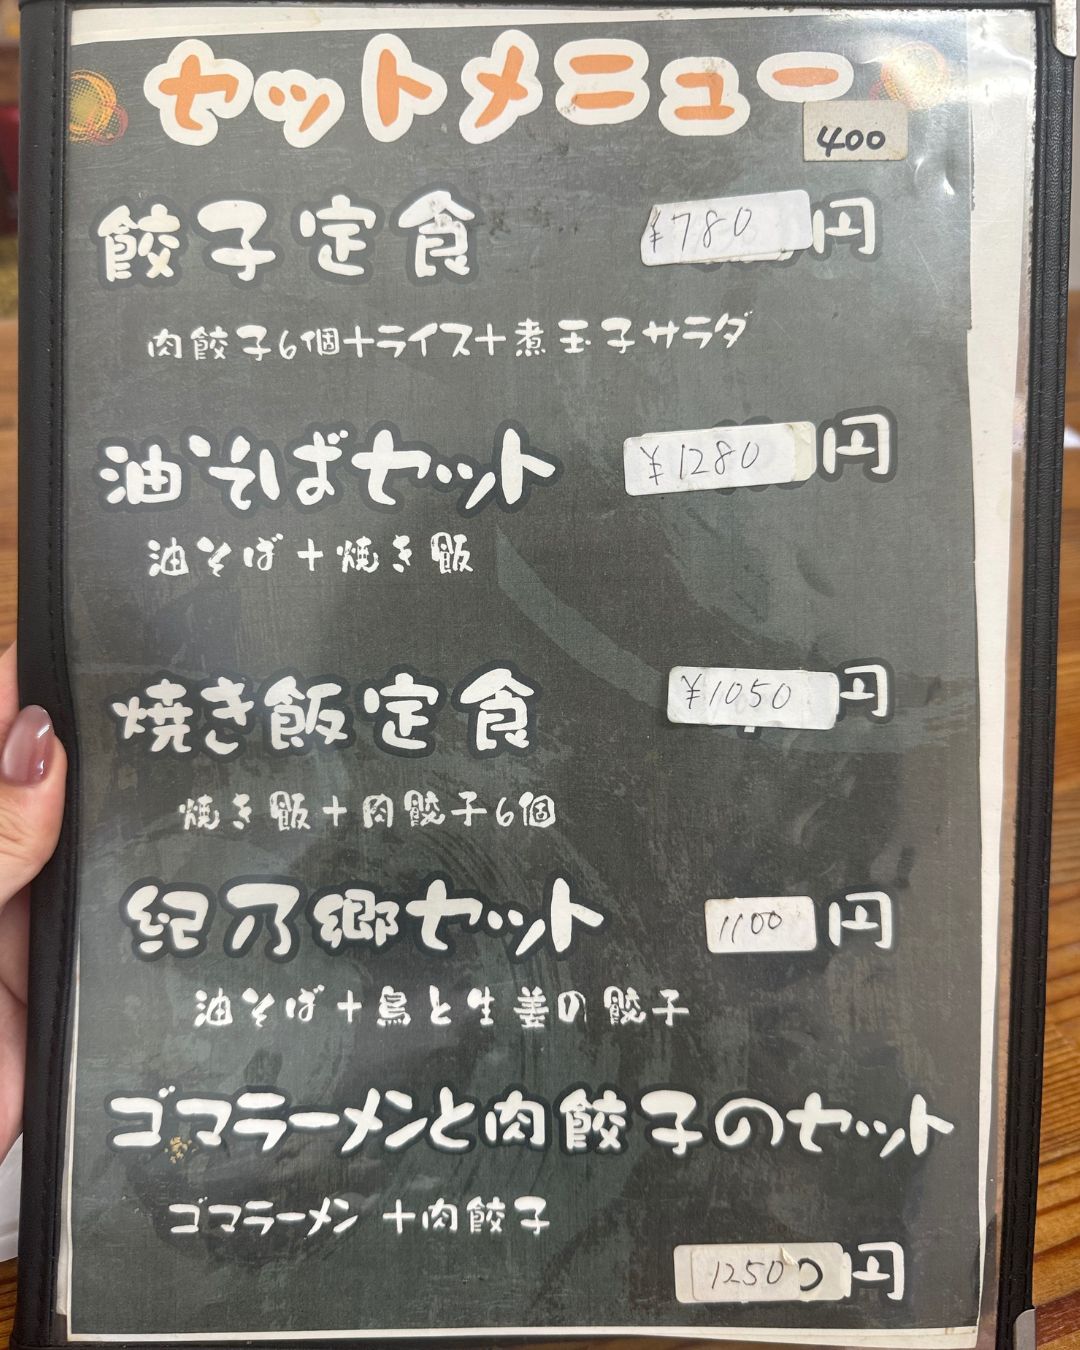 セットメニュー
400
餃子定食 ¥780円
肉餃子6個+ライス+煮玉子サラダ
油そばセット ¥1280円
油そば+焼き飯
焼き飯定食 ¥1050円
焼き飯+肉餃子6個
紀乃郷セット 1100円
油そば+鳥と生姜の餃子
ゴマラーメンと肉餃子のセット
ゴマラーメン +肉餃子
1250円